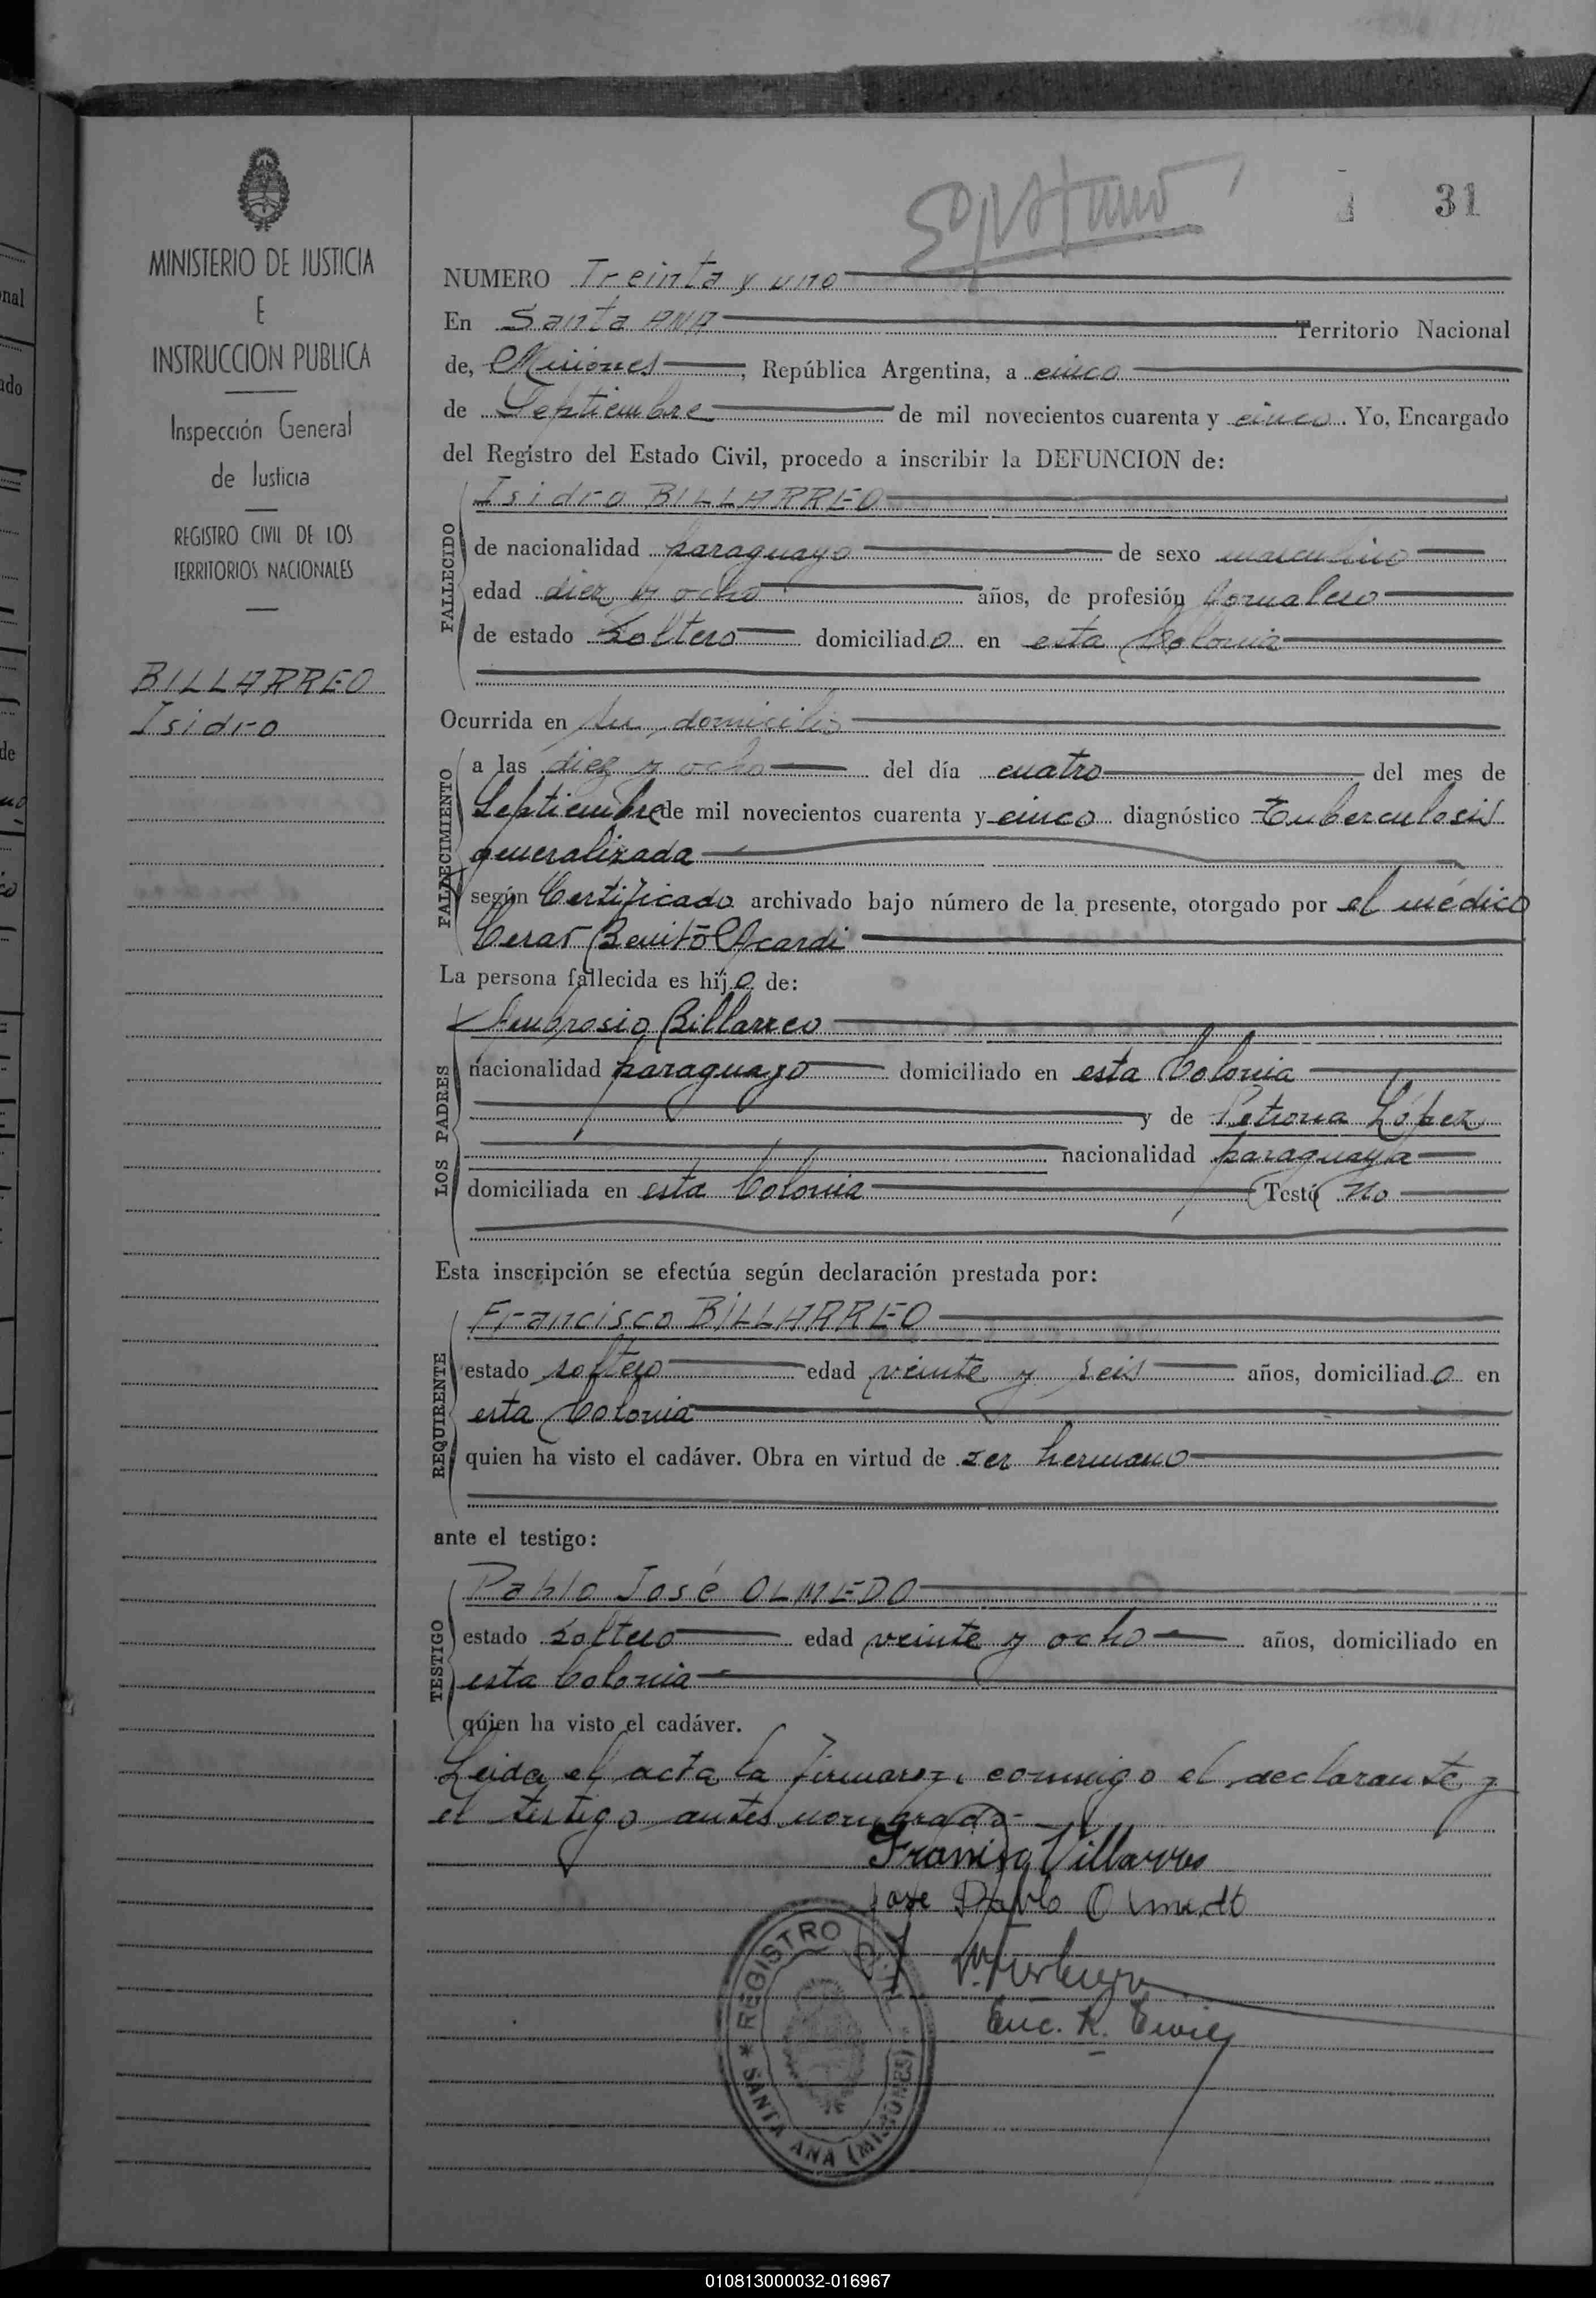 31
MINISTERIO DE JUSTICIA
E
INSTRUCCION PUBLICA
Inspección General
de Justicia
REGISTRO CIVIL DE LOS
TERRITORIOS NACIONALES
BILLARREO
Isidro
NUMERO Treinta y uno
En Santa ANA Territorio Nacional
de, Misiones, República Argentina, a cinco
de Septiembre de mil novecientos cuarenta y cinco. Yo, Encargado
del Registro del Estado Civil, procedo a inscribir la DEFUNCION de:
Isidro BILLARREO
FALLECIDO
de nacionalidad paraguayo de sexo masculino
edad diez y ocho años, de profesión Jornalero
de estado Soltero domiciliado en esta Colonia
Ocurrida en su domicilio
FALLECIMIENTO
a las diez y ocho del día cuatro del mes de
Septiembre de mil novecientos cuarenta y cinco diagnóstico Tuberculosis
generalizada
según Certificado archivado bajo número de la presente, otorgado por el médico
Cesar Benito Acardi
La persona fallecida es hijo de:
LOS PADRES
Ambrosio Billarreo
nacionalidad paraguayo domiciliado en esta Colonia
y de Petrona López
nacionalidad paraguaya
domiciliada en esta Colonia Testó No
Esta inscripción se efectúa según declaración prestada por:
REQUIRENTE
Francisco BILLARREO
estado soltero edad veinte y seis años, domiciliado en
esta Colonia
quien ha visto el cadáver. Obra en virtud de ser hermano
ante el testigo:
TESTIGO
Pablo José OLMEDO
estado soltero edad veinte y ocho años, domiciliado en
esta Colonia
quien ha visto el cadáver.
Leida el acta la firmaron conmigo el declarante y
el testigo antes nombrado
Villarreo
Jose Pablo Olmedo
Enc. R. Civil
* REGISTRO CIVIL * SANTA ANA (MISIONES)
010813000032-016967